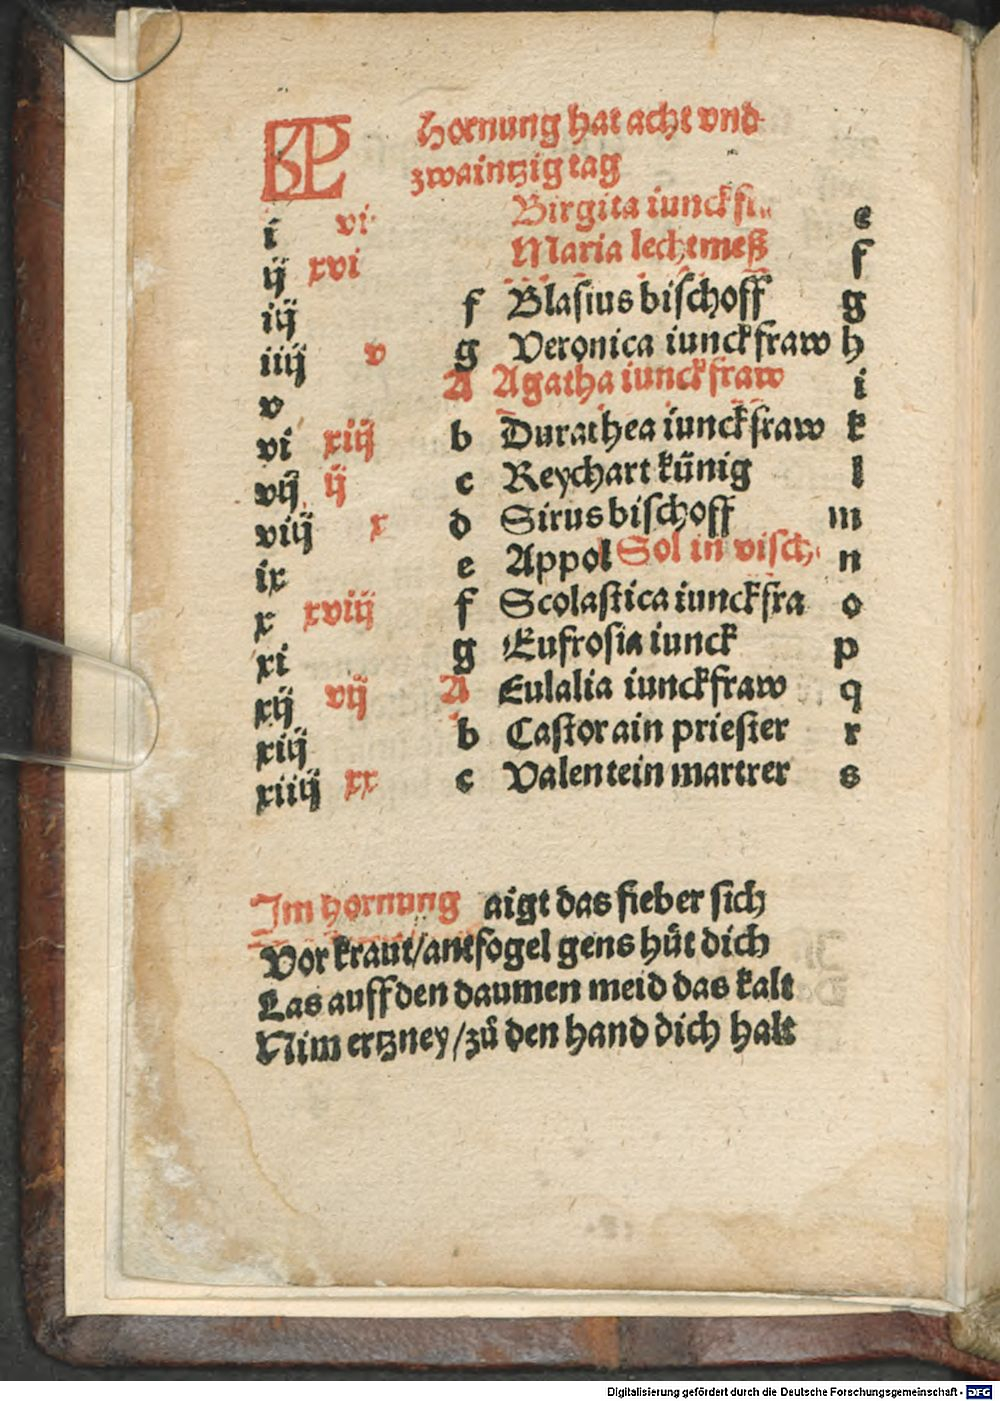 KL Hornung hat acht vnd
zwaintzig tag
i vi Birgita iunckfr e
ij xvi Maria lechtmeß f
iij f Blasius bischoff g
iiij v g Veronica iunckfraw h
v A Agatha iunckfraw i
vi xiij b Durathea iunckfraw k
vij ij c Reychart künig l
viij x d Sirus bischoff m
ix e Appol Sol in visch. n
x xviij f Scolastica iunckfra o
xi g Eufrosia iunck p
xij vij A Eulalia iunckfraw q
xiij b Castor ain priester r
xiiij xx c Valentein martrer s
Im hornung aigt das fieber sich
Vor kraut/antfogel gens hüt dich
Las auff den daumen meid das kalt
Nim ertzney/zů den hand dich halt
Digitalisierung gefördert durch die Deutsche Forschungsgemeinschaft - DFG